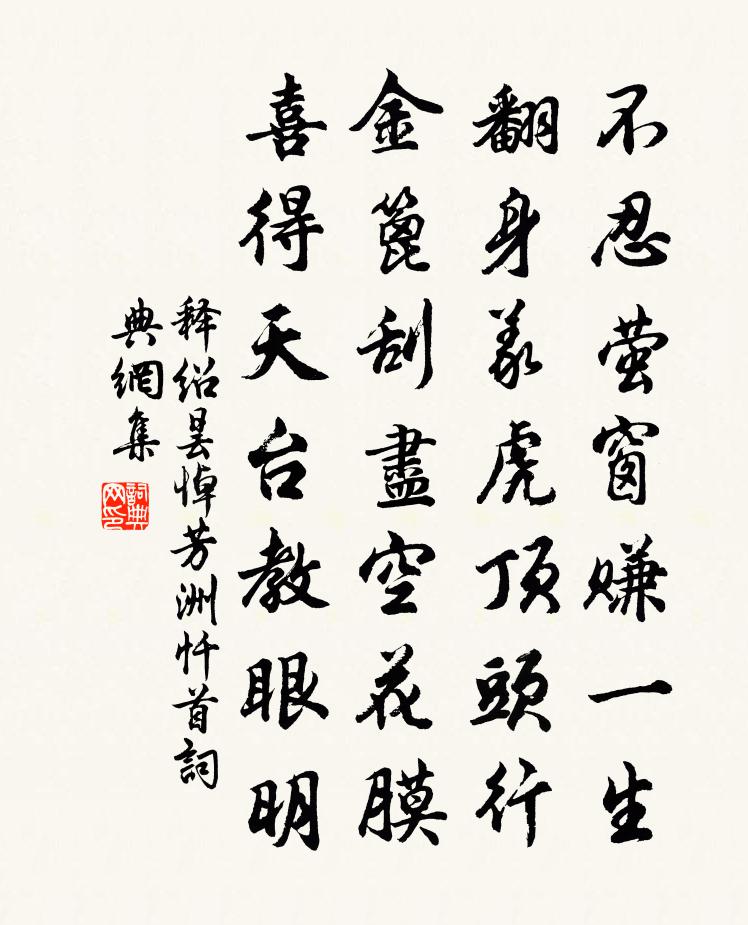 不忍萤窗赚一生
翻身義虎顶頭行
金篦刮盡空花膜
喜得天台教眼明
释绍昙悼芳洲忏首詞
典網集
詞典
网印